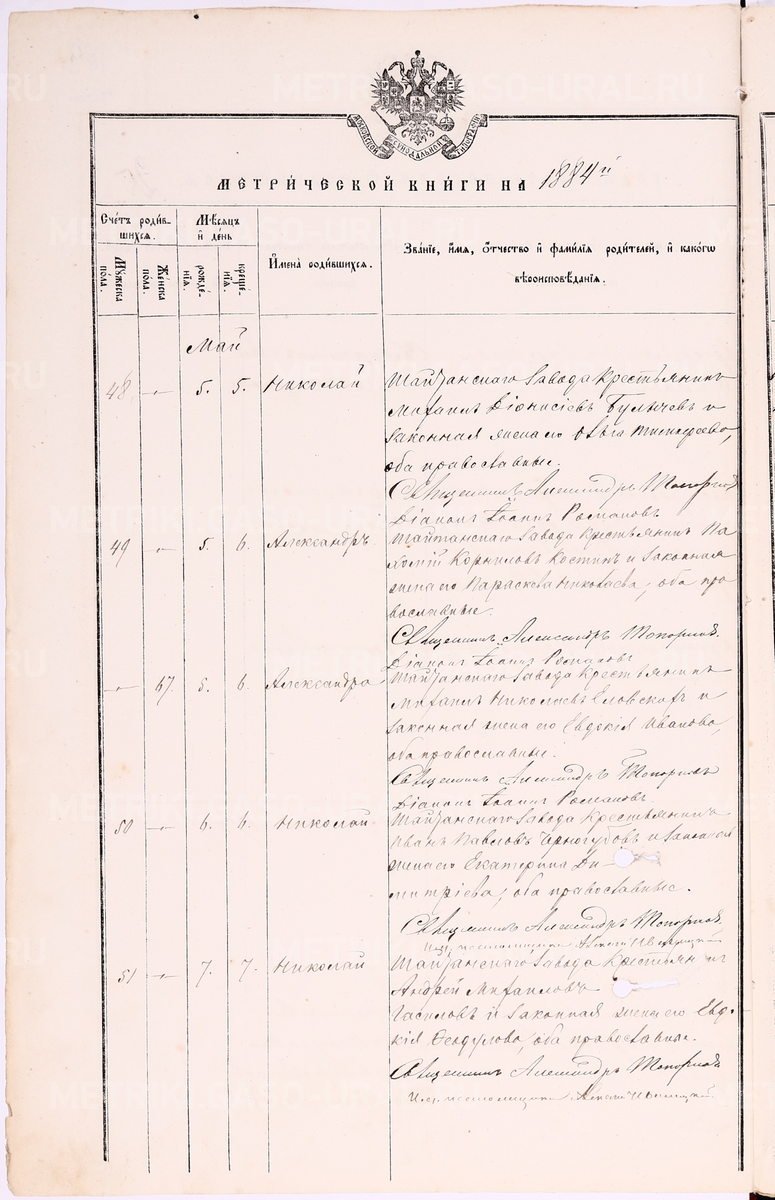 МОСКОВСКОЙ СѴНОДАЛЬНОЙ ТИПОГРАФІИ
МЕТРИ́ЧЕСКОЙ КНИ́ГИ НА 1884й
Сче́тъ роди́вшихся.
Мꙋ́жеска по́ла.
Же́нска по́ла.
Мѣ́сяцъ и҆ де́нь
рожде́нїя.
креще́нїя.
И҆мена̀ роди́вшихся.
Зва́нїе, и҆́мя, ѻ҆́тчество и҆ фами́лїя роди́телей, и҆ како́гѡ
вѣроисповѣ́данїя.
Май
48 — 5. 5. Николай
Шайтанскаго завода крестьянинъ
Михаилъ Діонисіевъ и
законная жена его Ольга
оба православные.
Священникъ Александръ Топорковъ
Діаконъ Іоаннъ Романовъ
49 — 5. 6. Александръ
Шайтанскаго завода крестьянинъ Па
хомій Корниловъ Костинъ и законная
жена его Параскева Николаева, оба пра
вославные.
Священникъ Александръ Топорковъ.
Діаконъ Іоаннъ Романовъ
— 47 5. 6. Александра
Шайтанскаго завода крестьянинъ
Михаилъ Николаевъ и
законная жена его Евдокія Иванова,
оба православные.
Священникъ Александръ Топорковъ
Діаконъ Іоаннъ Романовъ.
50 — 6. 6. Николай
Шайтанскаго завода крестьянинъ
Иванъ Павловъ Черногубовъ и законная
жена его Екатерина Ди-
митріева, оба православные.
Священникъ Александръ Топорковъ.
51 — 7. 7. Николай
Шайтанскаго завода крестьянинъ
Андрей Михаиловъ
и законная жена его Евдо
кія Феодулова, оба православные.
Священникъ Александръ Топорковъ